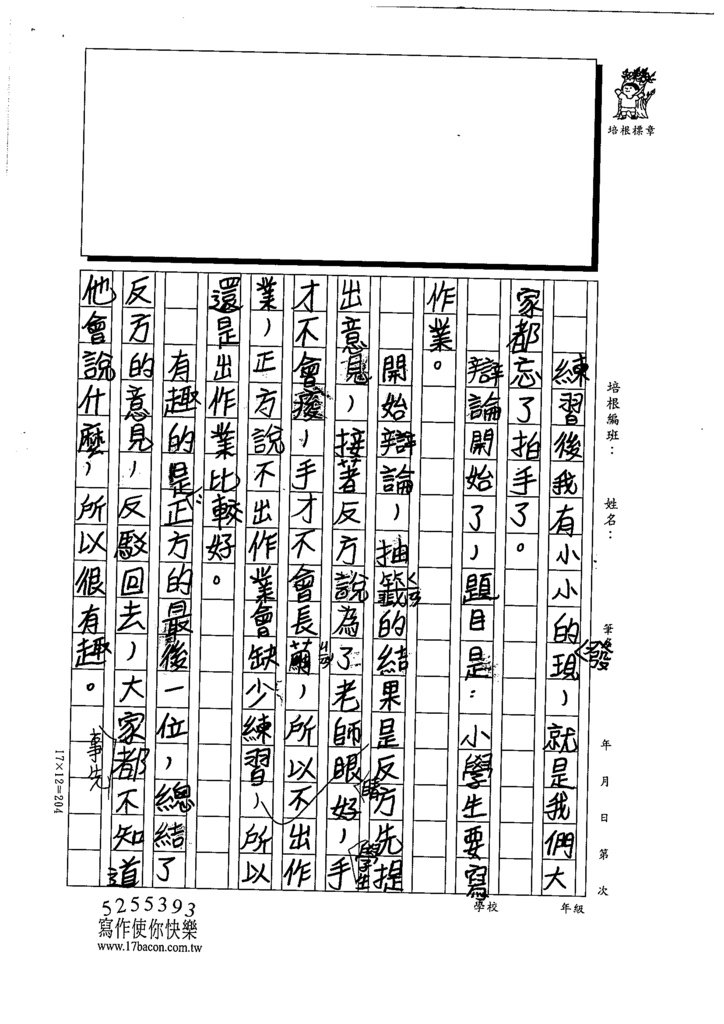 培根標章
培根編班：
姓名：
筆
年
月
日
第
次
學校
年級
練習後我有小小的現，就是我們大
發
家都忘了拍手了。
辯論開始了，題目是：小學生要寫
作業。
開始辯論，抽籤的結果是反方先提
ㄑㄧㄢ
出意見，接著反方說為了老師眼好，手
睛
學生
才不會痠，手才不會長繭，所以不出作
ㄐㄧㄢˇ
業，正方說不出作業會缺少練習，所以
還是出作業比較好。
有趣的是正方的最後一位，總結了
反方的意見，反駁回去，大家都不知道
事先
他會說什麼，所以很有趣。
17×12=204
5255393
寫作使你快樂
www.17bacon.com.tw